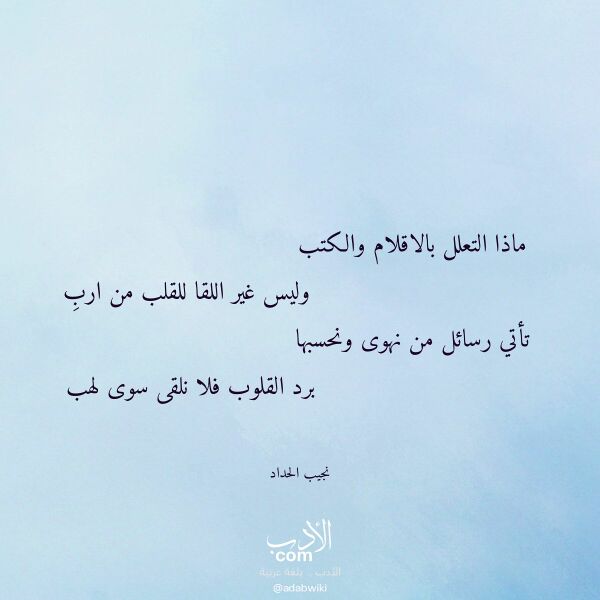 ماذا التعلل بالاقلام والكتب
وليس غير اللقا للقلب من اربِ
تأتي رسائل من نهوى ونحسبها
برد القلوب فلا نلقى سوى لهب
نجيب الحداد
الأدب
com
الأدب .. بلغة عربية
@adabwiki